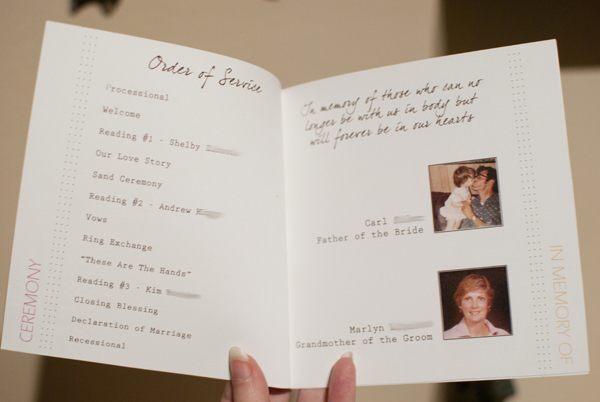 Order of Service
Processional
Welcome
Reading #1 - Shelby
Our Love Story
Sand Ceremony
Reading #2 - Andrew K
Vows
Ring Exchange
"These Are The Hands"
Reading #3 - Kim
Closing Blessing
Declaration of Marriage
Recessional
CEREMONY
In memory of those who can no
longer be with us in body but
will forever be in our hearts
Carl
Father of the Bride
Marlyn
Grandmother of the Groom
IN MEMORY OF